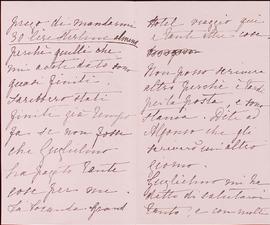 prego di mandarmi
30 Lire Sterline almeno
perchè quelli che
mi avete dato sono
quasi finiti.
Sarebbero stati
finiti già tempo
fa se non fosse
che Guglielmo
ha pagato tante
cose per me.
La Locanda Grand
Hotel viaggio qui
e tante altre cose
Non posso scrivere
altro perchè è tardi
per la posta, e sono
stanca. Dite ad
Alfonso che gli
scriverò un altro
giorno.
Guglielmo mi ha
detto di salutarvi
tanto, e con molti